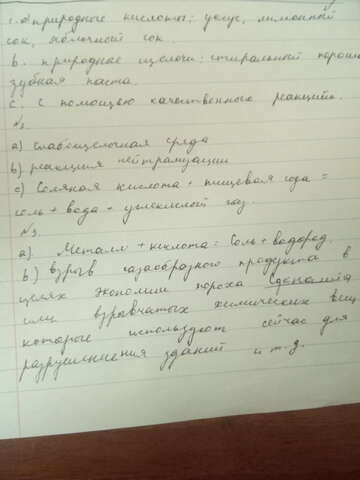 1. а природные кислоты: уксус, лимонный
сок, яблочный сок.
b. природные щелочи: стиральный порошок
зубная паста.
c. с помощью качественного реакции.
а) слабощелочная среда
b) реакция нейтрализации
с) Соляная кислота + пищевая сода =
соль + вода + углекислой газ.
№3
а). Металл + кислота = Соль + водород.
b) взрыв газообразного продукта в
целях экономии пороха
или взрывчатых химических вещ
которые используют сейчас для
разрушенения зданий и т.д.